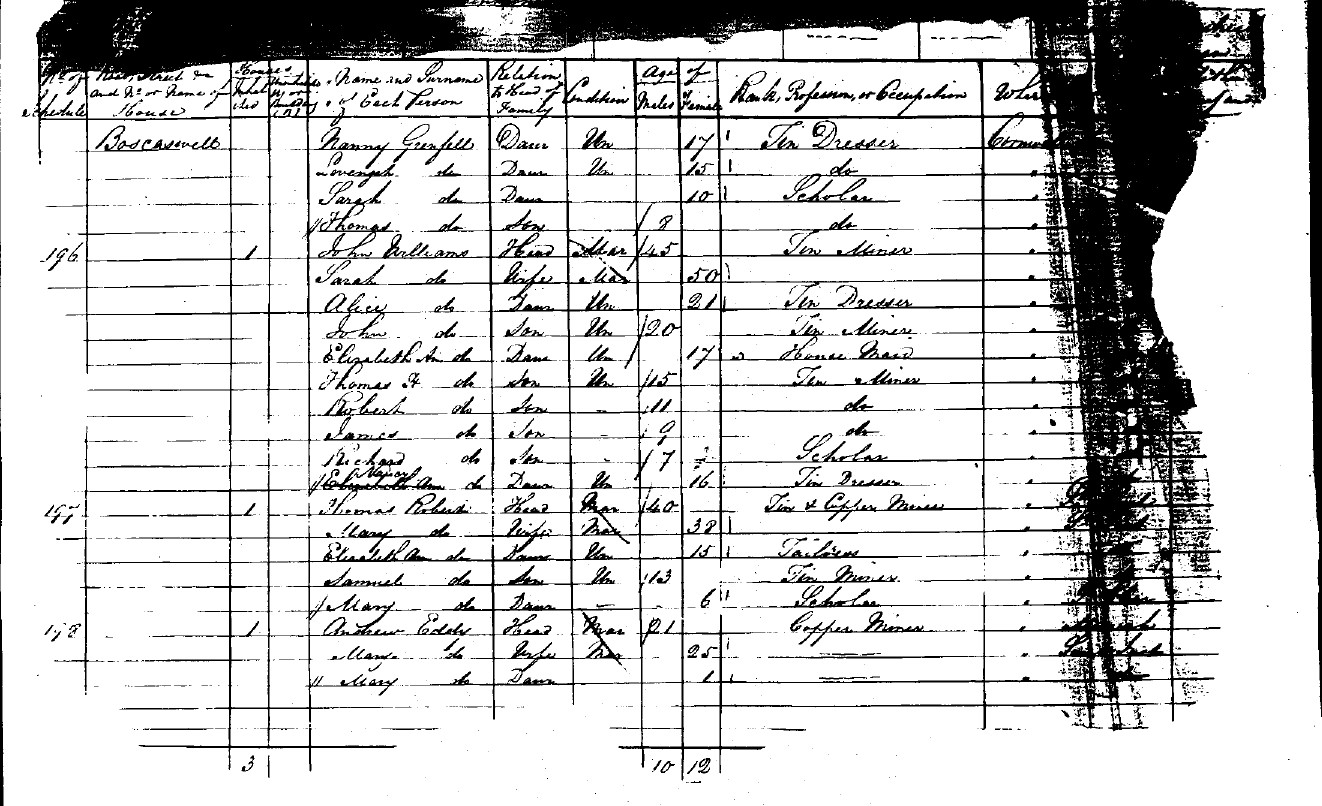 No. of Schedule | Road, Street &c and No. or Name of House | Houses Inhabited | Name and Surname of Each Person | Relation to Head of Family | Condition | Age of Males | Females | Rank, Profession, or Occupation | Where
Boscaswell Nanny Grenfell Daur Un 17 Tin Dresser Cornwall
do Daur Un 15 do "
Sarah do Daur 10 Scholar "
Thomas do Son 8 do "
196 1 John Williams Head Mar 45 Tin Miner "
Sarah do Wife Mar 50 "
Alice do Daur Un 21 Tin Dresser "
John do Son Un 20 Tin Miner "
Elizabeth An do Daur Un 17 House Maid "
Thomas H do Son Un 15 Tin Miner "
Robert do Son - 11 do "
James do Son - 9 do "
Richard do Son - 7 Scholar "
Nanny
Elizabeth Ann do Daur Un 16 Tin Dresser "
197 1 Thomas Roberts Head Mar 40 Tin & Copper Miner "
Mary do Wife Mar 38 "
Elizabeth An do Daur Un 15 Tailoress "
Samuel do Son Un 13 Tin Miner "
Mary do Daur - - 6 Scholar "
198 1 Andrew Eddy Head Mar 21 Copper Miner "
Mary do Wife Mar 25 "
Mary do Daur 1 "
3 10 12